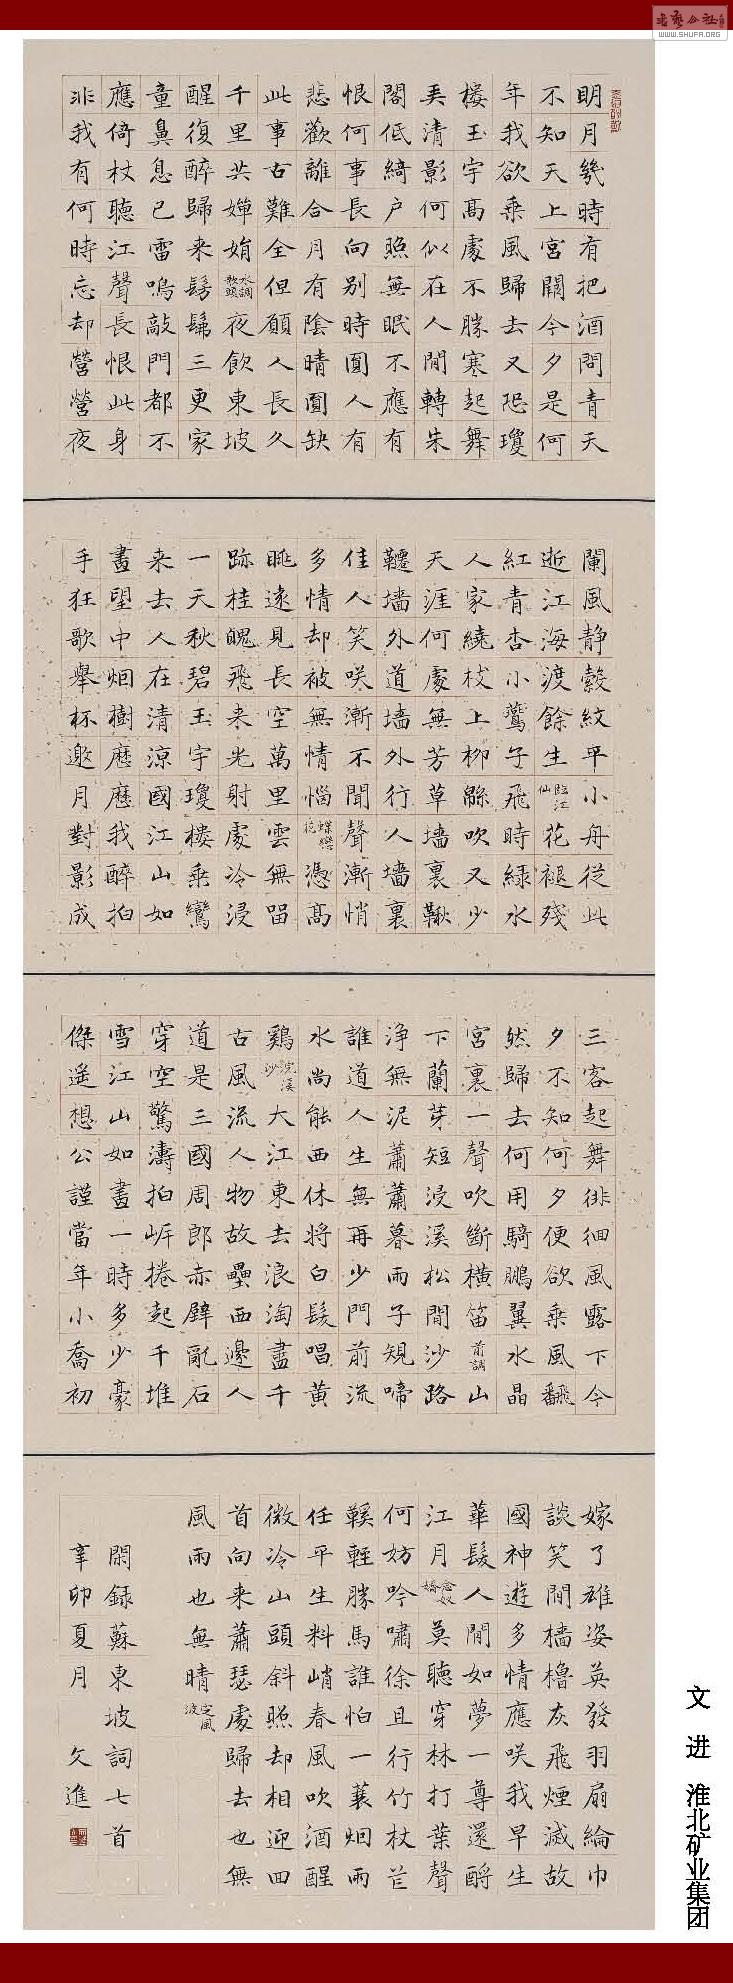 明月幾時有把酒問青天
不知天上宮闕今夕是何
年我欲乘風歸去又恐瓊
樓玉宇高處不勝寒起舞
弄清影何似在人間轉朱
閣低綺户照無眠不應有
恨何事長向别時圓人有
悲歡離合月有陰晴圓缺
此事古難全但願人長久
千里共嬋娟水調歌頭夜飲東坡
醒復醉歸来髣髴三更家
童鼻息已雷鳴敲門都不
應倚杖聽江聲長恨此身
非我有何時忘却營營夜
闌風静縠紋平小舟從此
逝江海渡餘生臨江仙花褪殘
紅青杏小鶯子飛時緑水
人家繞枝上柳緜吹又少
天涯何處無芳草墻裏鞦
韆墙外道墙外行人墙裏
佳人笑咲漸不聞聲漸悄
多情却被無情惱蝶戀花憑高
眺遠見長空萬里雲無留
跡桂魄飛来光射處冷浸
一天秋碧玉宇瓊樓乘鸞
来去人在清涼國江山如
畫望中烟樹歷歷我醉拍
手狂歌舉杯邀月對影成
三客起舞徘徊風露下今
夕不知何夕便欲乘風翻
然歸去何用騎鵬翼水晶
宮裏一聲吹斷横笛前調山
下蘭芽短浸溪松間沙路
浄無泥蕭蕭暮雨子規啼
誰道人生無再少門前流
水尚能西休將白髮唱黄
鷄浣溪沙大江東去浪淘盡千
古風流人物故壘西邊人
道是三國周郎赤壁亂石
穿空驚濤拍岸捲起千堆
雪江山如畫一時多少豪
傑遥想公謹當年小喬初
嫁了雄姿英發羽扇綸巾
談笑間檣櫓灰飛煙滅故
國神遊多情應咲我早生
華髮人間如夢一尊還酹
江月念奴嬌莫聽穿林打葉聲
何妨吟嘯徐且行竹杖芒
鞵輕勝馬誰怕一蓑烟雨
任平生料峭春風吹酒醒
微冷山頭斜照却相迎回
首向来蕭瑟處歸去也無
風雨也無晴定風波
閑録蘇東坡詞七首
辛卯夏月 文進
文进 淮北矿业集团
WWW.SHUFA.ORG